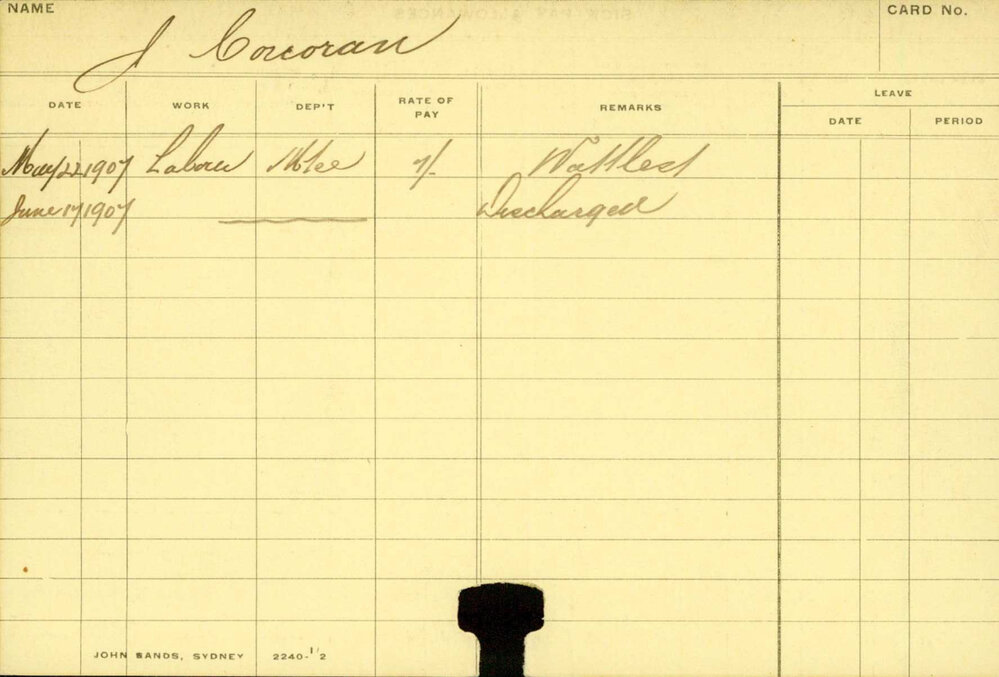 NAME J Corcoran CARD No.
DATE WORK DEP'T RATE OF PAY REMARKS LEAVE
DATE PERIOD
May 22 1907 Labour 7/-
June 17 1907 Discharged
JOHN SANDS, SYDNEY 2240-1/2